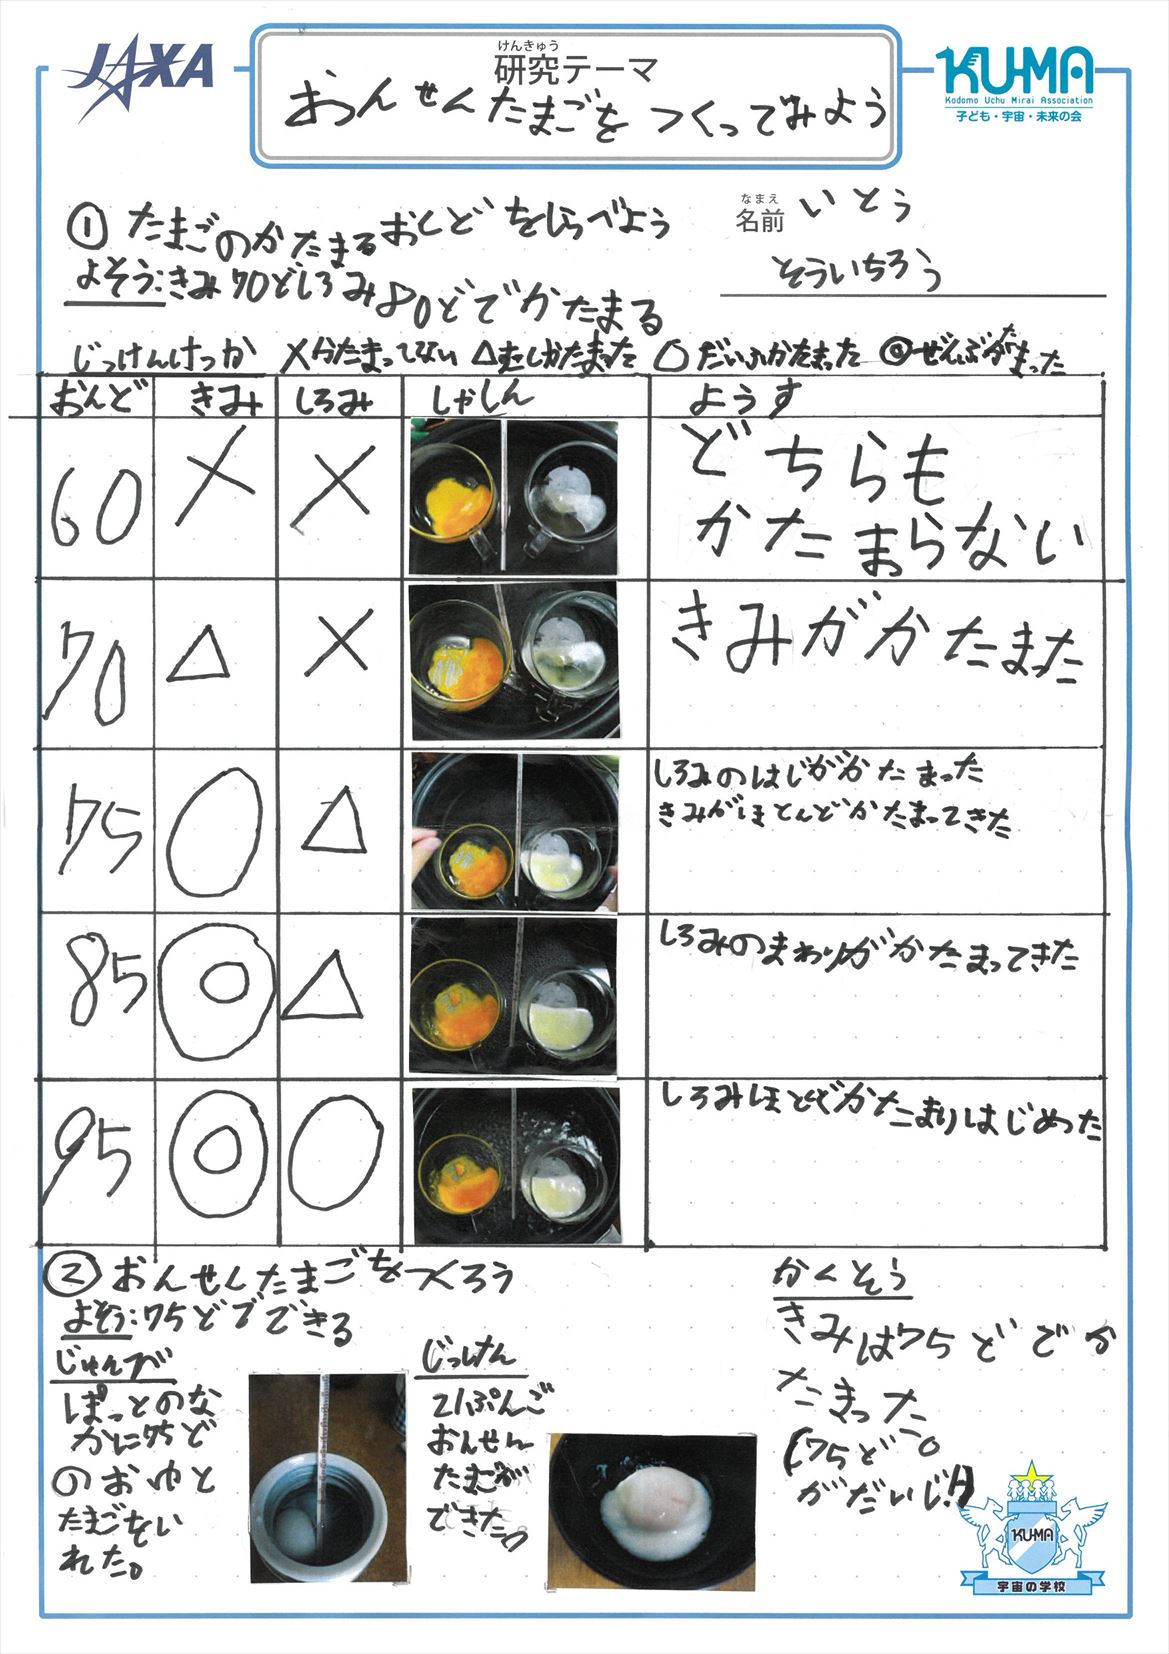 JAXA
けんきゅう
研究テーマ
おんせんたまごを つくってみよう
KU-MA
Kodomo Uchu Mirai Association
子ども・宇宙・未来の会
なまえ
名前 いとう
そういちろう
① たまごのかたまるおんどをしらべよう
よそう:きみ70どしろみ80どでかたまる
じっけんけっか ×かたまってない △すこしかたまった ○だいぶかたまった ◎ぜんぶかたまった
おんど きみ しろみ しゃしん ようす
60 × × どちらも
かたまらない
70 △ × きみがかたまった
75 ○ △ しろみのはじがかたまった
きみがほとんどかたまってきた
85 ◎ △ しろみのまわりがかたまってきた
95 ◎ ○ しろみほとどかたまりはじめった
② おんせんたまごをつくろう
よそう:75どでできる
じゅんび
ぽっとのな
かに75ど
のおゆと
たまごをい
れた。
じっけん
21ぷんご
おんせん
たまごが
できた。
かんそう
きみは75どでか
たまった
(75ど。
がだいじ!!)
KU-MA
宇宙の学校